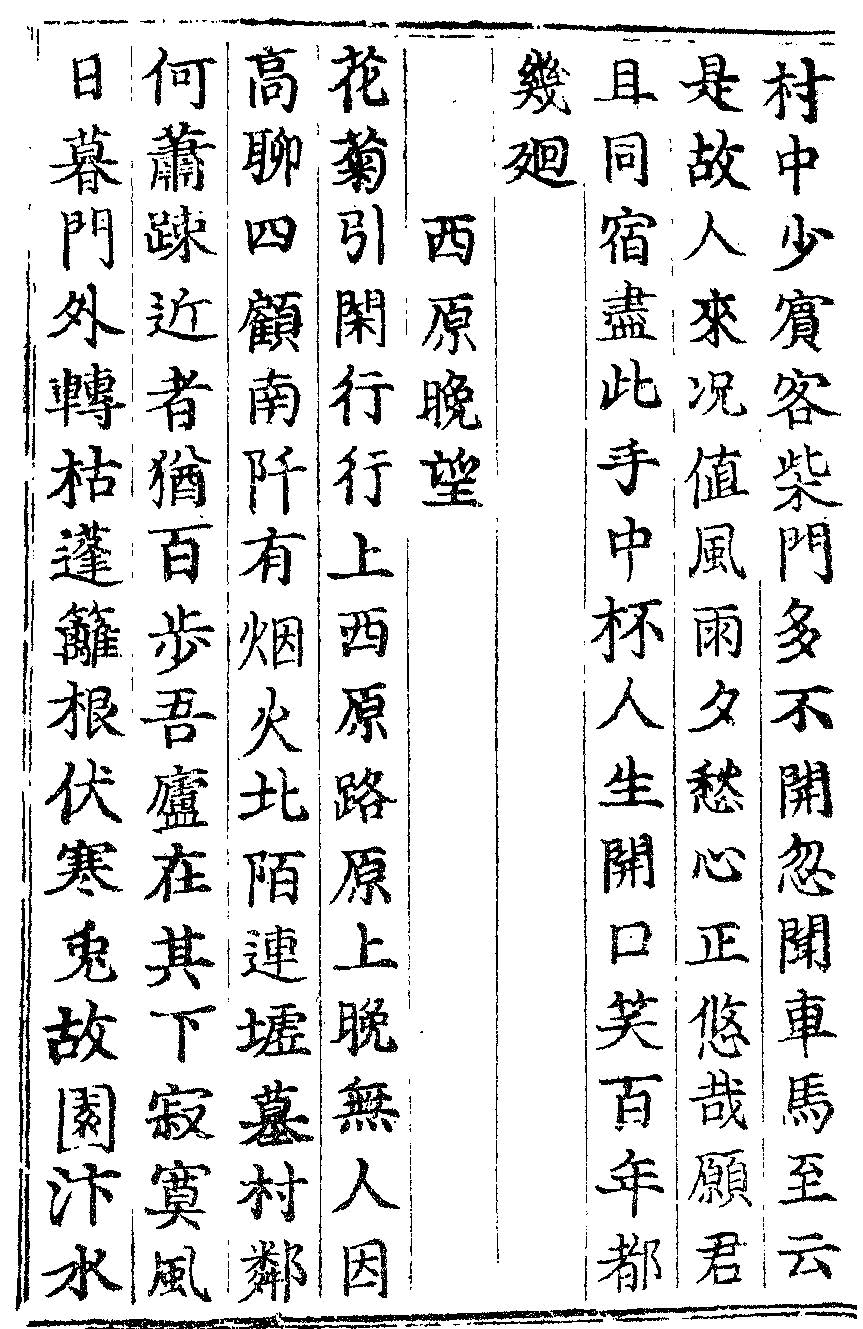 村中少賓客柴門多不開忽聞車馬至云
是故人來况值風雨夕愁心正悠哉願君
且同宿盡此手中杯人生開口笑百年都
幾廻
西原晚望
花菊引閑行行上西原路原上晚無人因
高聊四顧南阡有烟火北陌連墟墓村鄰
何蕭踈近者猶百步吾廬在其下寂寞風
日暮門外轉枯蓬籬根伏寒兎故園汴水